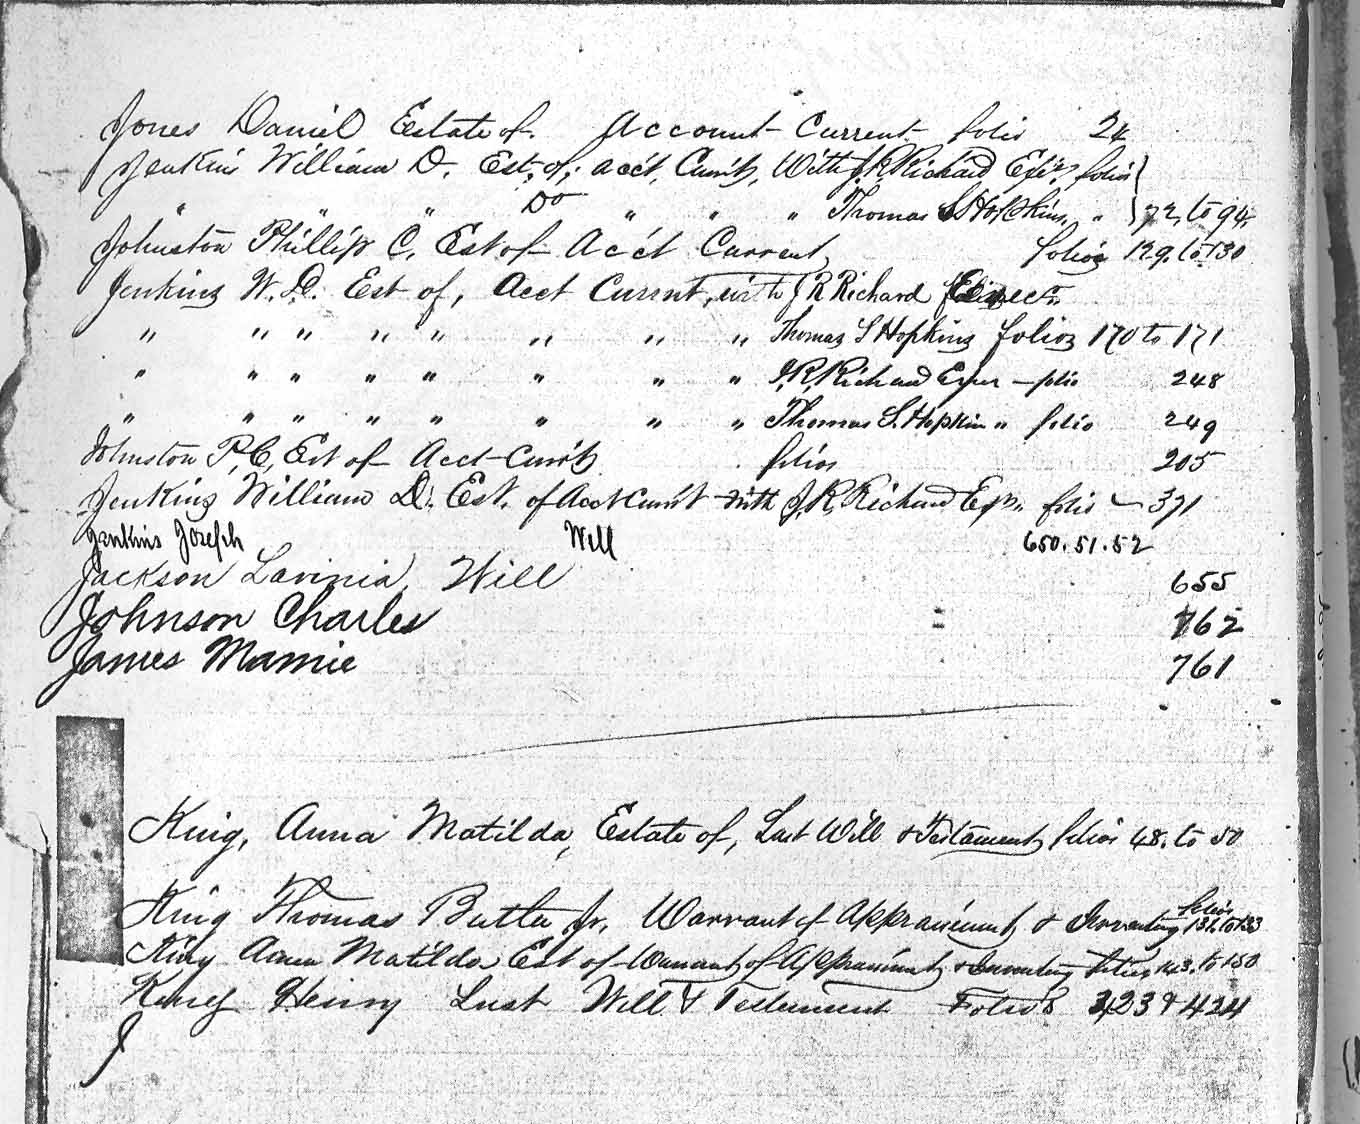 Jones Daniel Estate of. Account Current folio 24
Jenkins William D. Est. of, acct. Curnt, With J. R. Richard Exr folio
" " " Do " " " Thomas S Hopkins " 92 to 94
Johnston Phillip C. Est of Acct Current folios 129. to 130
Jenkins W. D. Est of, Acct Curent, with J R Richard
" " " " " " " " Thomas S Hopkins folios 170 to 171
" " " " " " " " J. R. Richard Exer - folio 248
" " " " " " " " Thomas S. Hopkin " folio 249
Johnston P. C. Est of Acct Curnt folios 205
Jenkins William D. Est. of Acct Curnt with J. R. Richard Exr. folio - 371
Jenkins Joseph Will 650. 51. 52
Jackson Lavinia, Will 655
Johnson Charles = 762
James Mamie 761
King, Anna Matilda, Estate of, Last Will & Testament folios 48. to 50
King Thomas Butler Jr. Warrant of Appraisment & Inventory folios 131. to 133
King Anna Matilda Est of Warrant of Appraisment & Inventory folios 143. to 150
King Henry Last Will & Testement Folios 423 & 424
J